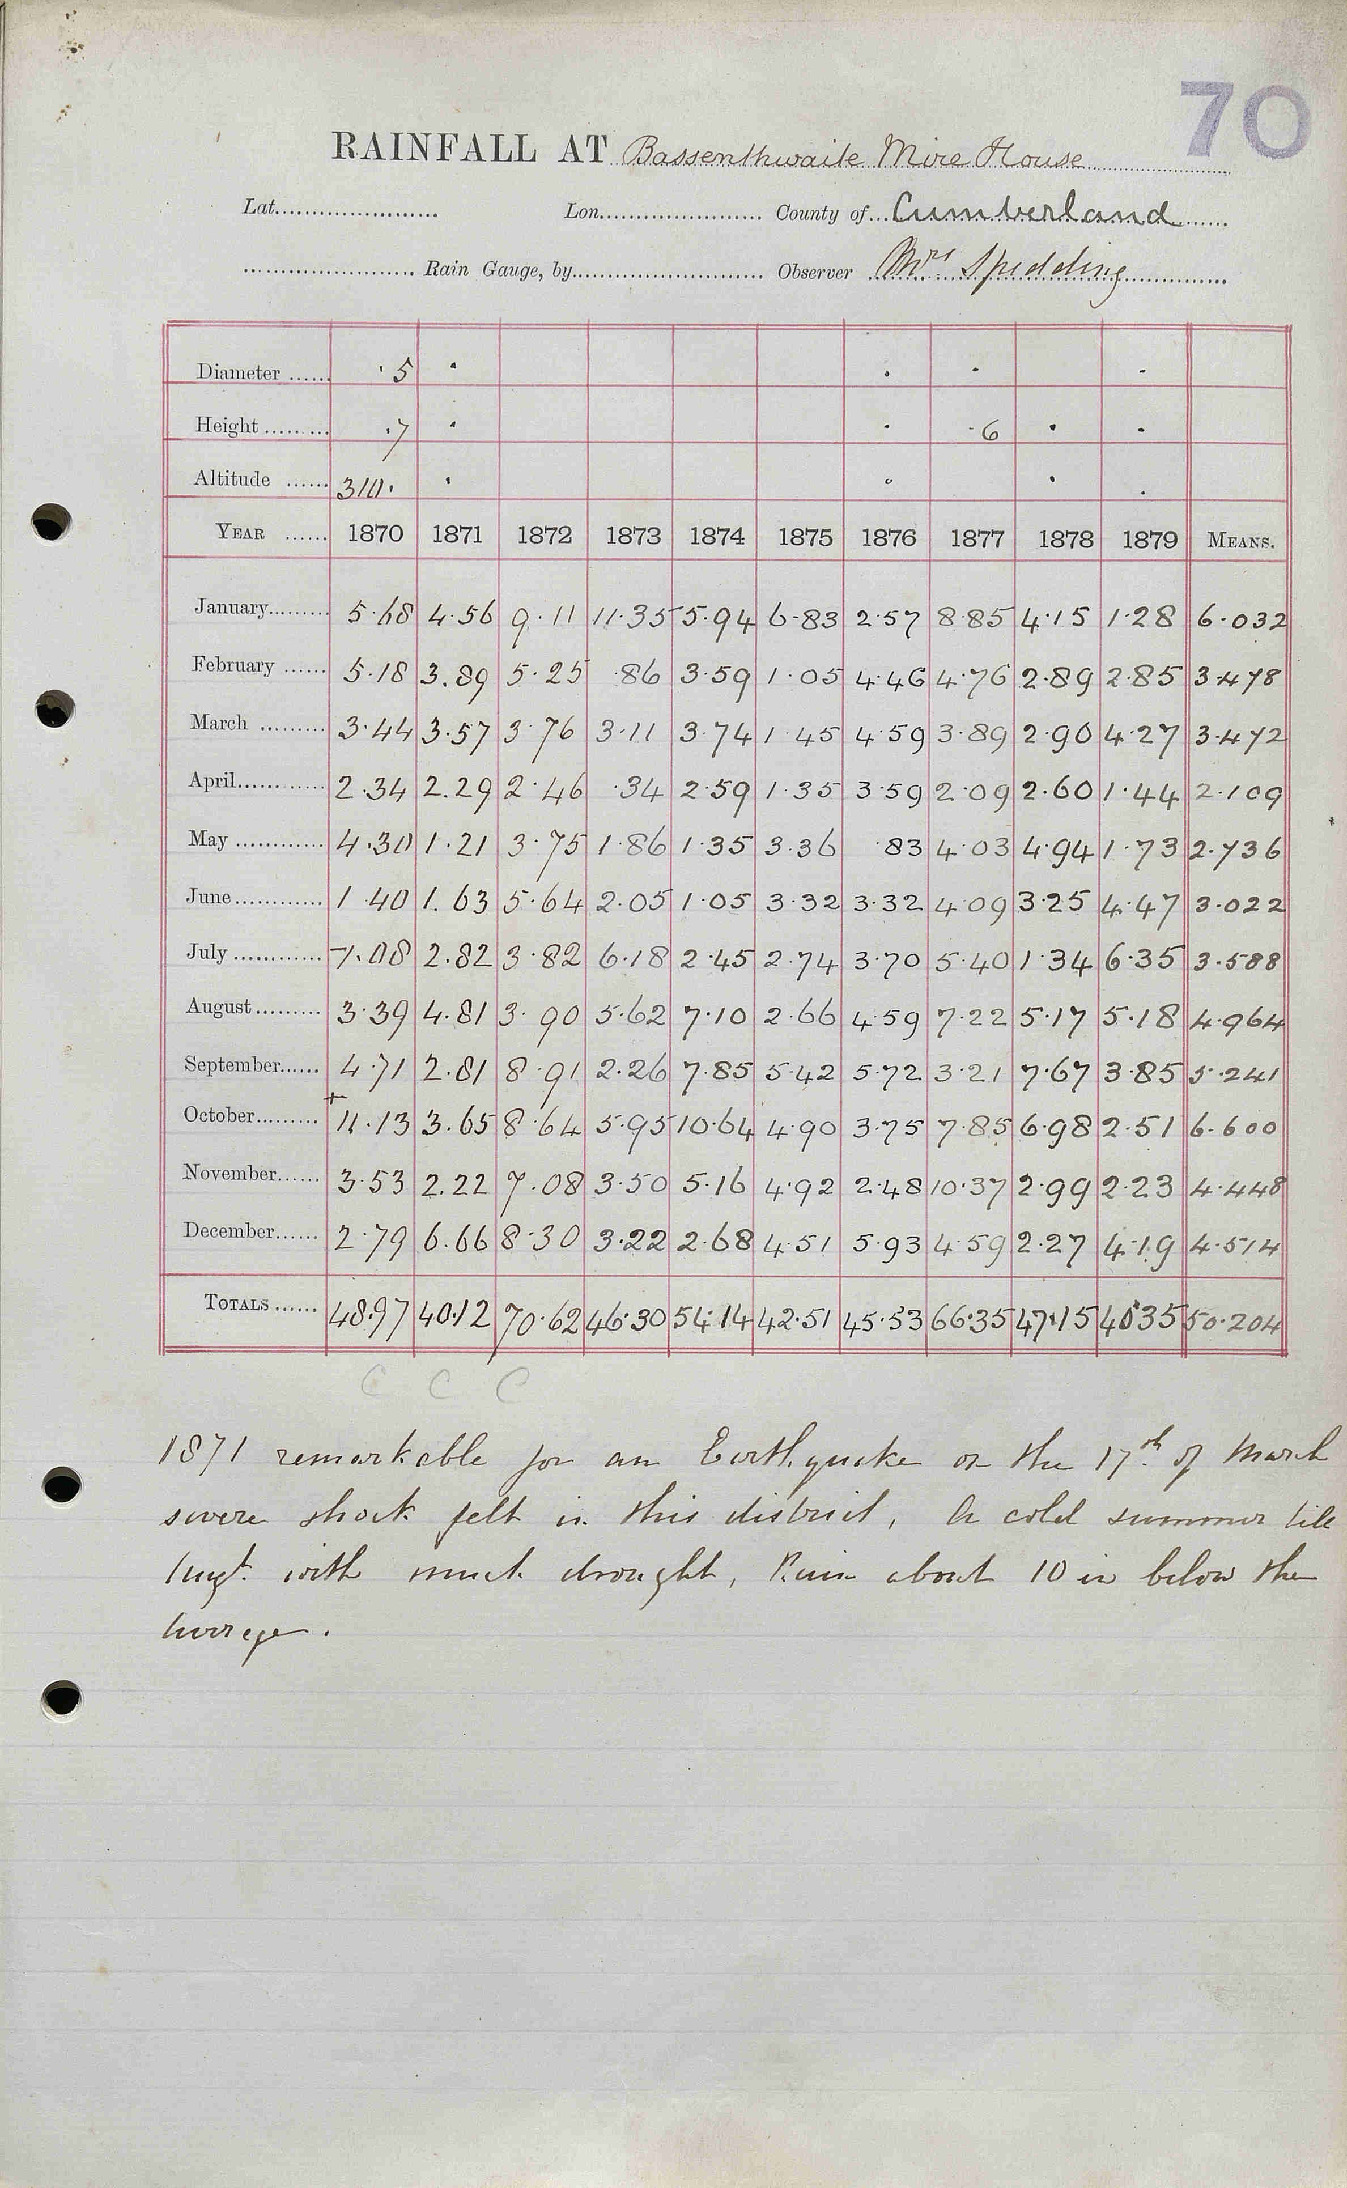 70
RAINFALL AT Bassenthwaite Mire House
Lat. Lon. County of Cumberland
Rain Gauge, by Observer Mrs Spedding
Diameter ...... 5
Height ......... 7 6
Altitude ...... 310.
YEAR ...... 1870 1871 1872 1873 1874 1875 1876 1877 1878 1879 MEANS.
January......... 5.68 4.56 9.11 11.35 5.94 6.83 2.57 8.85 4.15 1.28 6.032
February ...... 5.18 3.89 5.25 .86 3.59 1.05 4.46 4.76 2.89 2.85 3.478
March ......... 3.44 3.57 3.76 3.11 3.74 1.45 4.59 3.89 2.90 4.27 3.472
April............ 2.34 2.29 2.46 .34 2.59 1.35 3.59 2.09 2.60 1.44 2.109
May ............ 4.30 1.21 3.75 1.86 1.35 3.36 .83 4.03 4.94 1.73 2.736
June............ 1.40 1.63 5.64 2.05 1.05 3.32 3.32 4.09 3.25 4.47 3.022
July ............ 1.08 2.82 3.82 6.18 2.45 2.74 3.70 5.40 1.34 6.35 3.588
August......... 3.39 4.81 3.90 5.62 7.10 2.66 4.59 7.22 5.17 5.18 4.964
September...... 4.71 2.81 8.91 2.26 7.85 5.42 5.72 3.21 7.67 3.85 5.241
October......... + 11.13 3.65 8.64 5.95 10.64 4.90 3.75 7.85 6.98 2.51 6.600
November...... 3.53 2.22 7.08 3.50 5.16 4.92 2.48 10.37 2.99 2.23 4.448
December...... 2.79 6.66 8.30 3.22 2.68 4.51 5.93 4.59 2.27 4.19 4.514
TOTALS ...... 48.97 40.12 70.62 46.30 54.14 42.51 45.53 66.35 47.15 40.35 50.204
C C C
1871 remarkable for an Earthquake on the 17th of March
severe shock felt in this district, A cold summer till
Augt. with much drought, Rain about 10 in below the
Average.